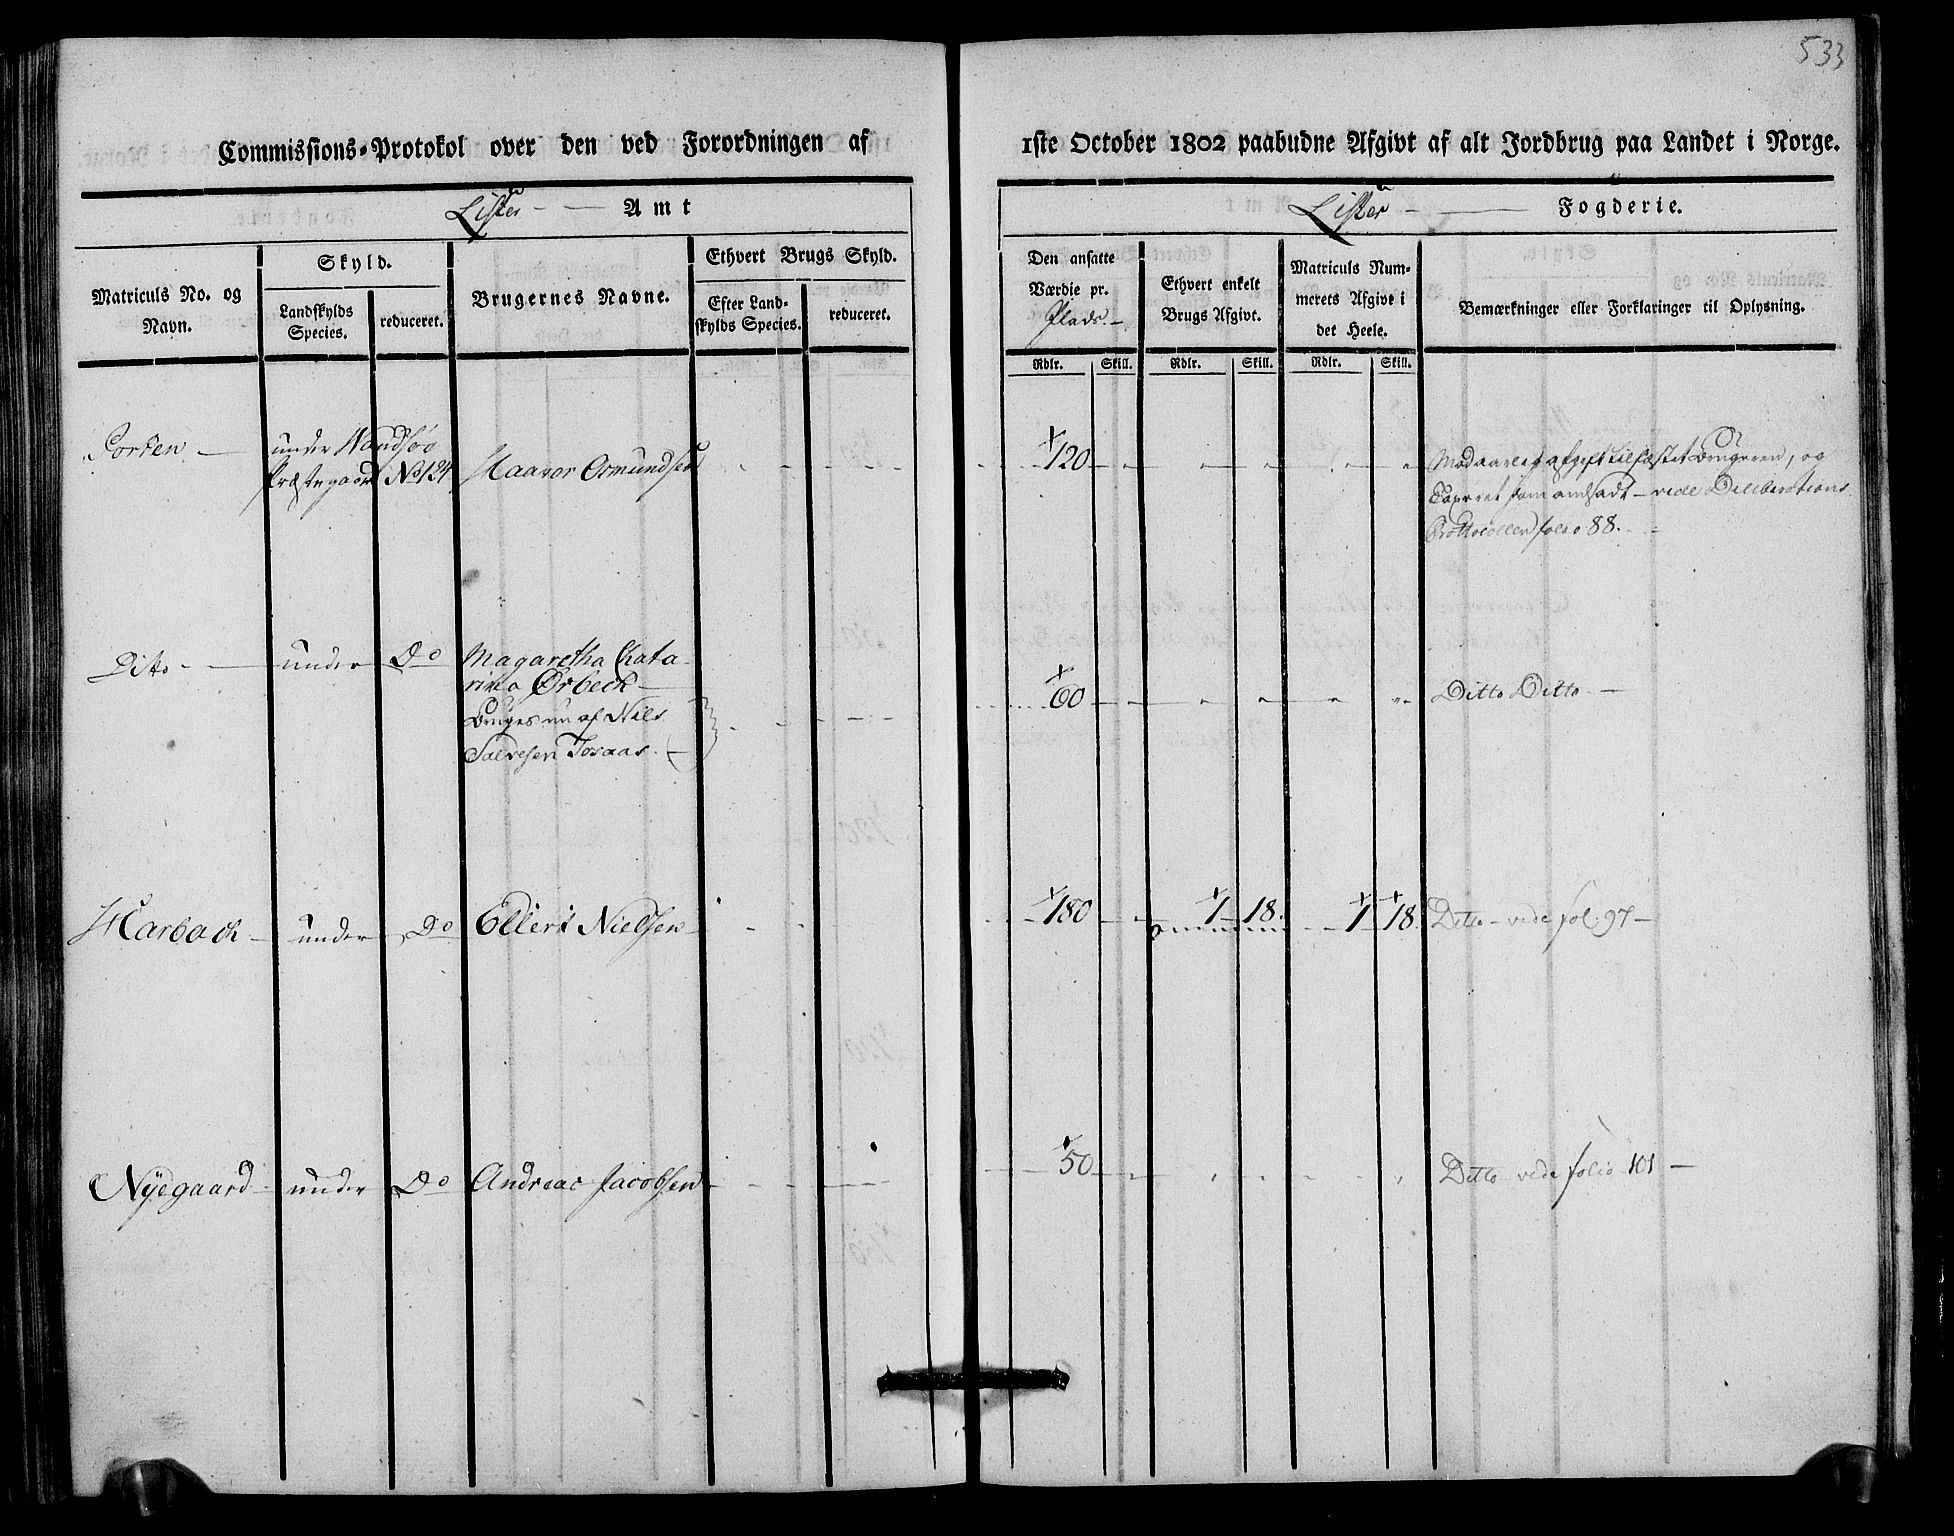 533
Commissions-Protokol over den ved Forordningen af 1ste October 1802 paabudne Afgivt af alt Jordbrug paa Landet i Norge.
Lister Amt
Lister Fogderie.
Matriculs No. og Navn.
Skyld.
Landskylds Species.
reduceret.
Brugernes Navne.
Ethvert Brugs Skyld.
Efter Landskylds Species.
reduceret.
Den ansatte Værdie pr. Plads.
Ethvert enkelt Brugs Afgivt.
Matriculs Nummerets Afgivt i det Heele.
Bemærkninger eller Forklaringer til Oplysning.
Rdlr. Skill. Rdlr. Skill. Rdlr. Skill.
under
Præstegaard No 124
Haavor Osmundsen
120
Med aarlig afgift tilfæstet Brugeren, og
Taxeret som andsadt - vide Deliberations
Prottocollen folio 88.
Ditto under Do
Magaretha Chata-
rina Ørbeck
Bruges nu af Nels
Salvesen Tosaas.
60
Ditto Ditto
Harback under Do Ellert Nielsen 180 1 18. 1 18. Ditto - vide fol. 97
Nyegaard under Do Andreas Jacobsen 50 Ditto - vide folio 101